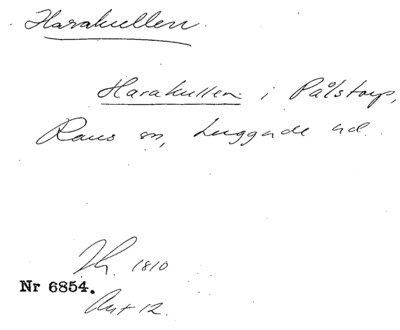 Harakullen.
Harakullen i Pålstorp,
Raus sn, Luggude hd.
Th. 1810
Nr 6854.
Akt 12.